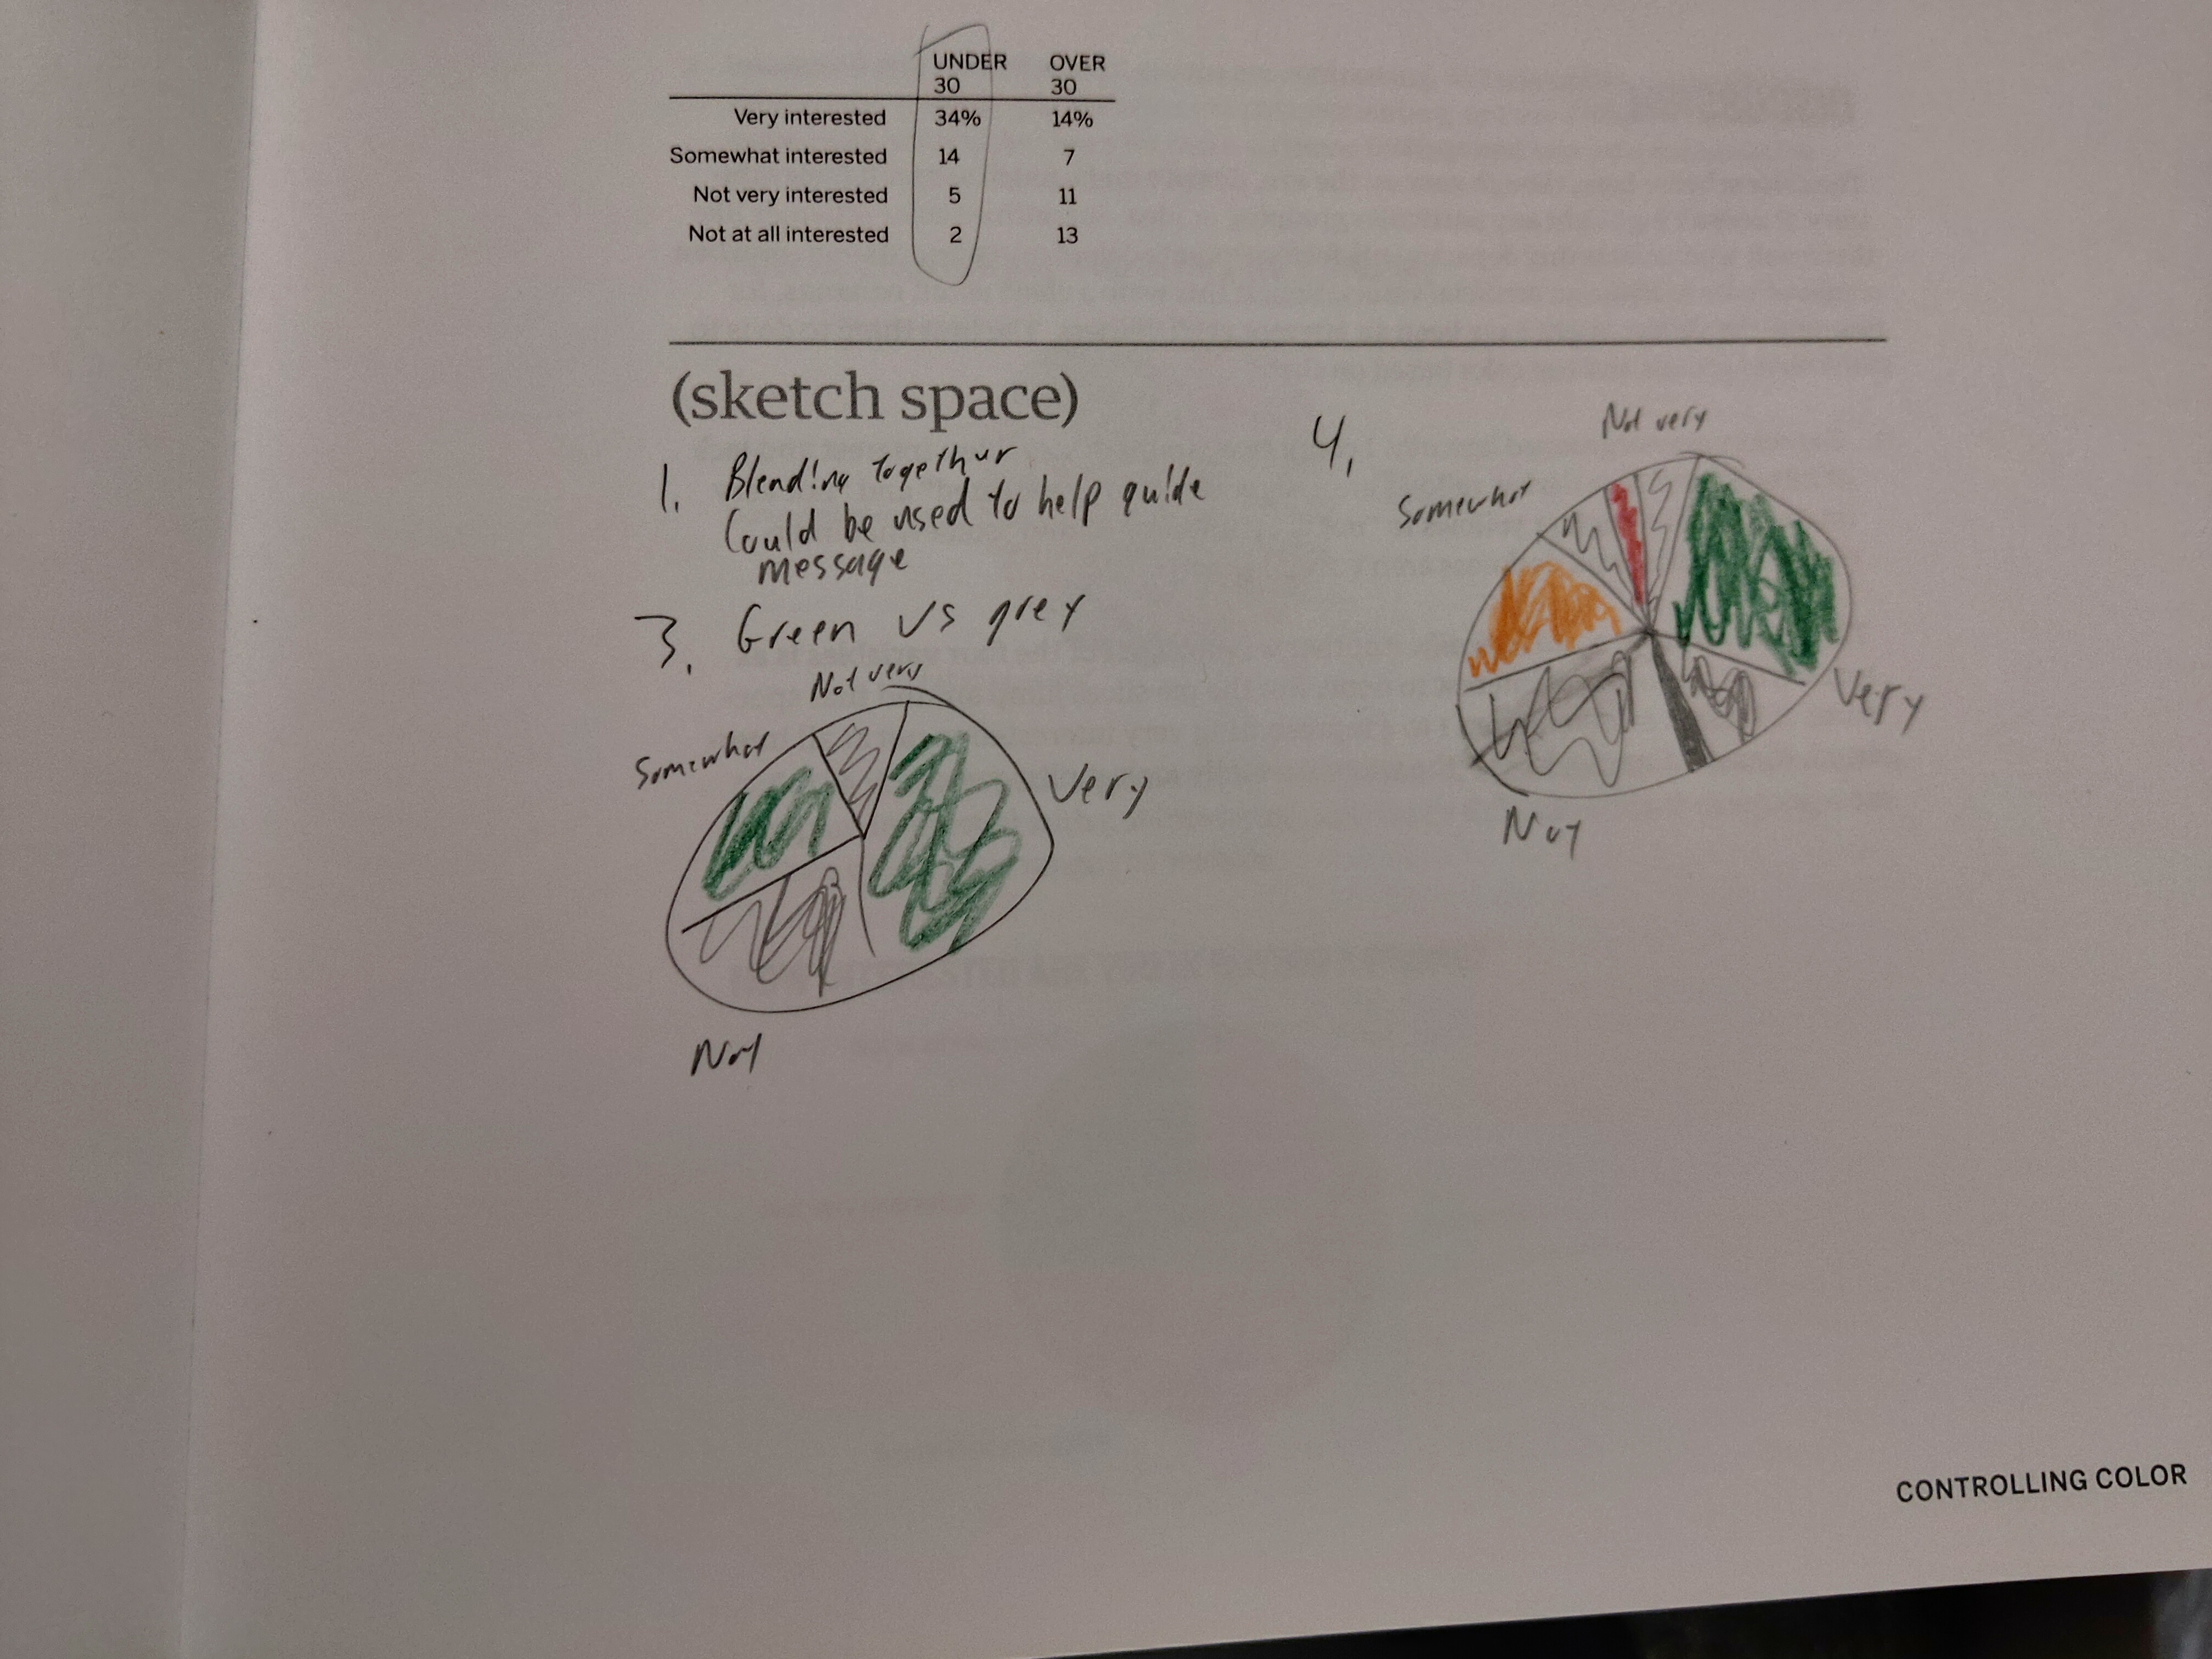 UNDER OVER
30 30
Very interested 34% 14%
Somewhat interested 14 7
Not very interested 5 11
Not at all interested 2 13
(sketch space)
1. Blending together
Could be used to help guide
message
3. Green vs grey
Not very
Somewhat
Very
4.
Not very
Somewhat
Very
CONTROLLING COLOR